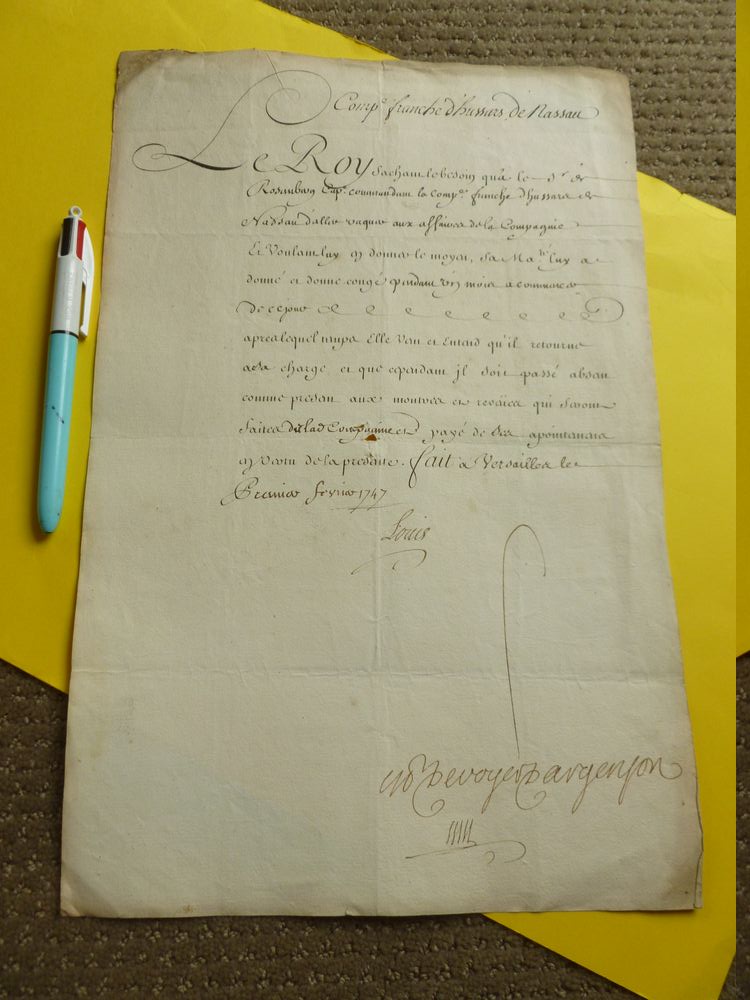 Comp.e franche d'hussars de Nassau
Le Roy sachant le besoin qu'a le S.r de
Rosenberg Cap.e commandant la comp.e franche d'hussars de
Nassau d'aller vaquer aux affaires de la Compagnie
Et Voulant luy en donner le moyen, Sa Ma.té luy a
donné et donne congé pendant un mois a commencer
de ce jour
apres lequel temps Elle Veut et Entend qu'il retourne
a sa charge et que cependant jl soit passé absent
comme present aux montres et reveües qui seront
faites de lad Compagnie et payé de ses apointemens
en vertu de la presente. Fait a Versailles le
Premier fevrier 1747
Louis
M De voyer D'argenson